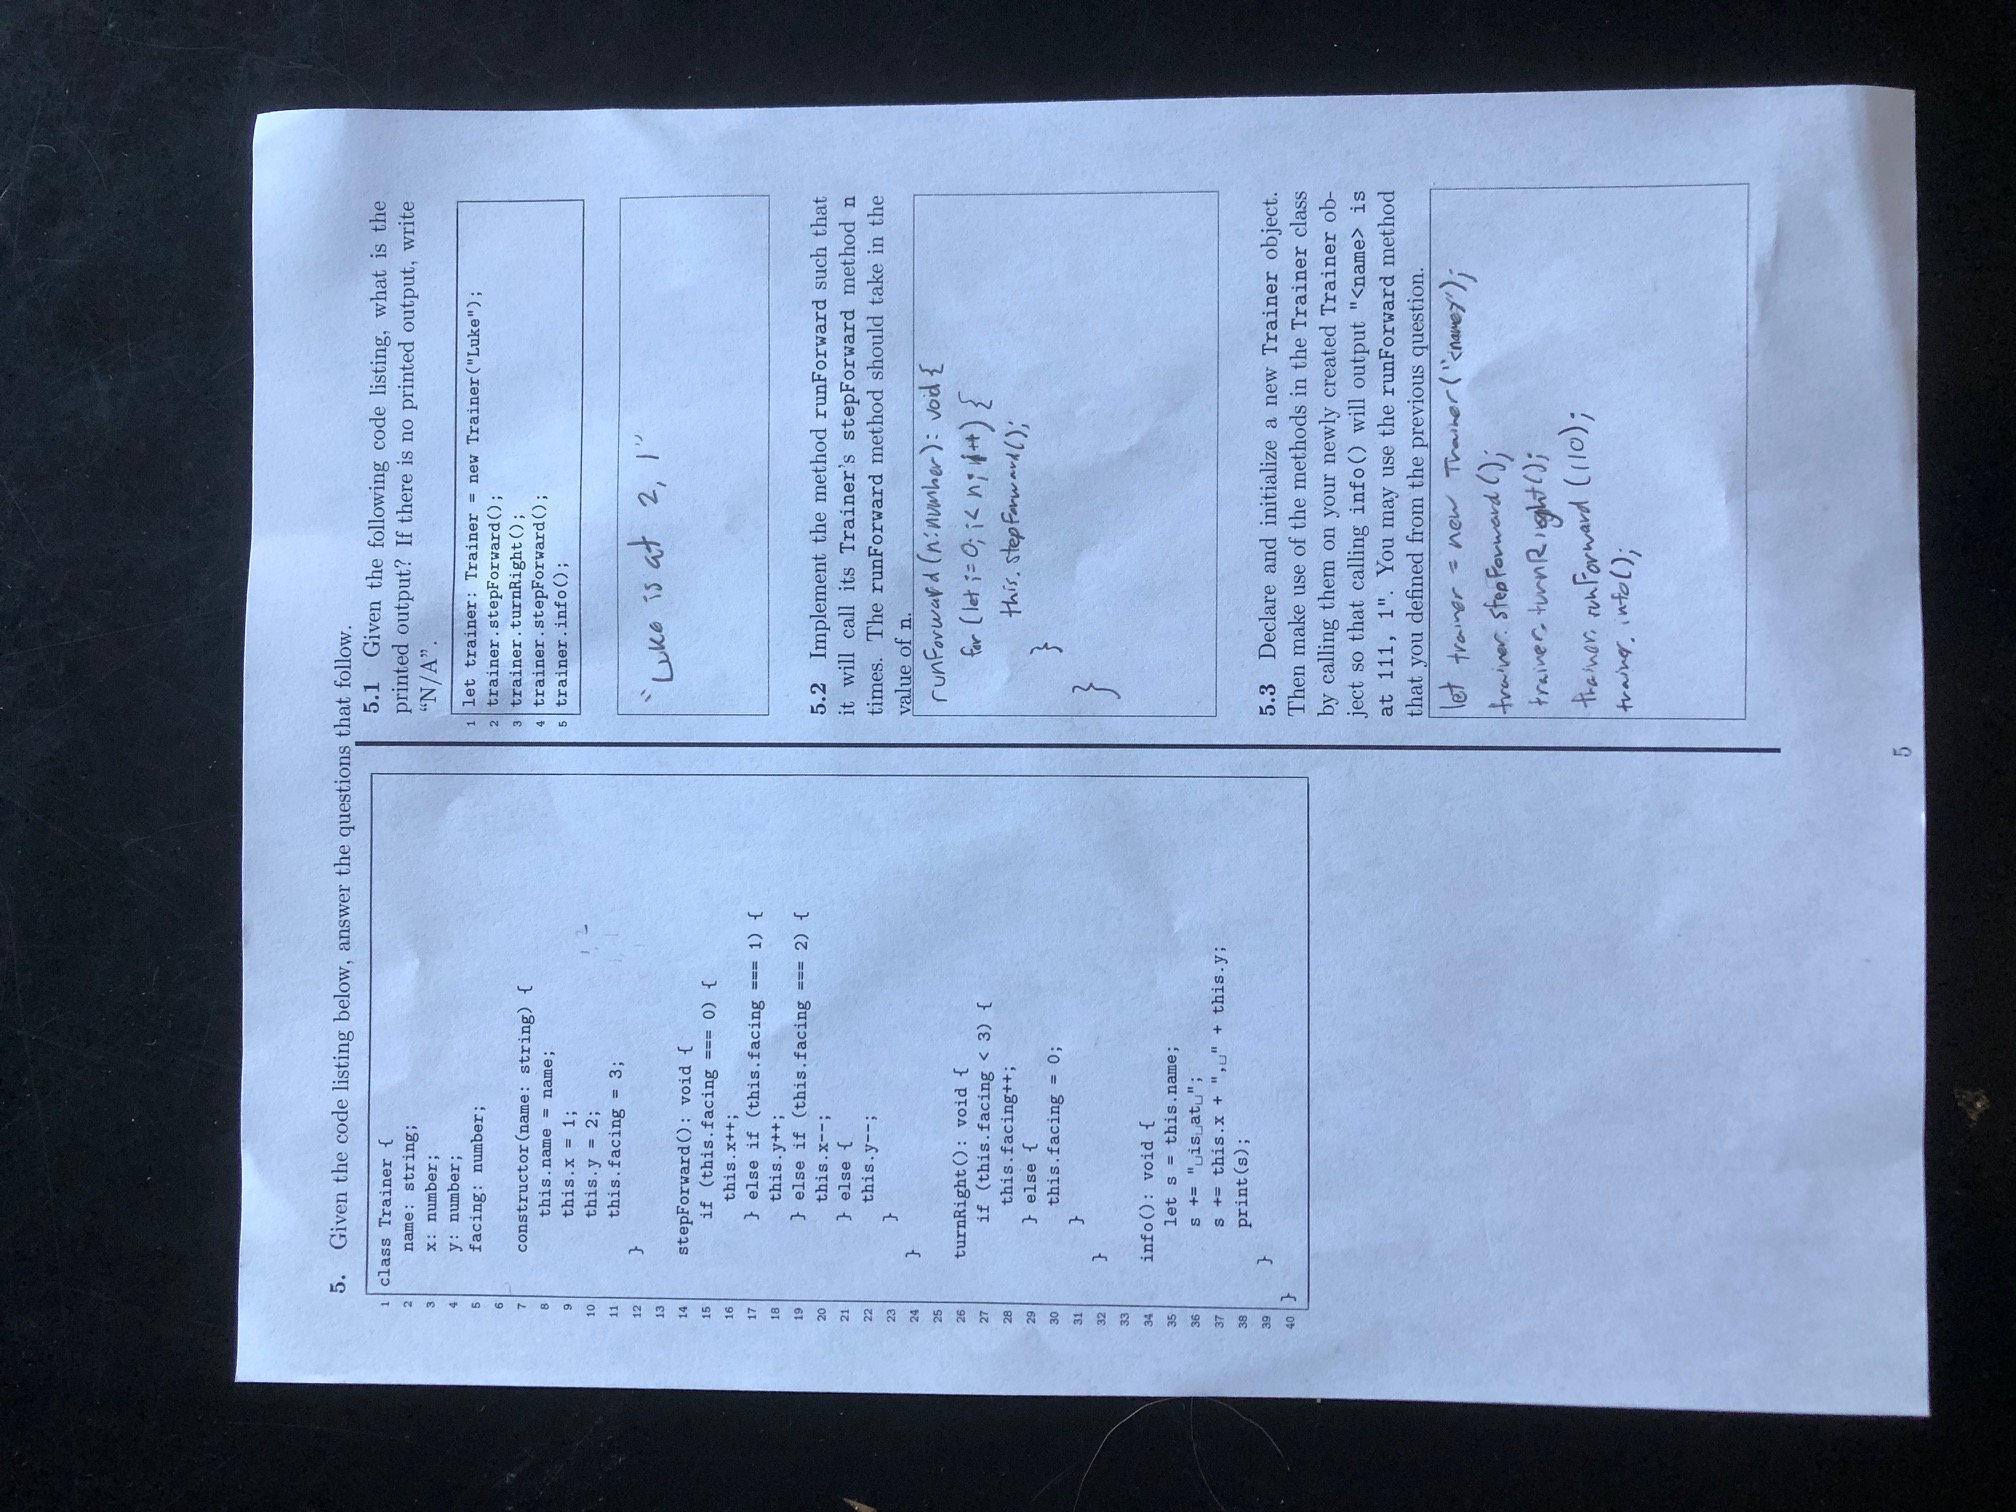 5. Given the code listing below, answer the questions that follow.
1 class Trainer {
2 name: string;
3 x: number;
4 y: number;
5 facing: number;
6
7 constructor(name: string) {
8 this.name = name;
9 this.x = 1;
10 this.y = 2;
11 this.facing = 3;
12 }
13
14 stepForward(): void {
15 if (this.facing === 0) {
16 this.x++;
17 } else if (this.facing === 1) {
18 this.y++;
19 } else if (this.facing === 2) {
20 this.x--;
21 } else {
22 this.y--;
23 }
24 }
25
26 turnRight(): void {
27 if (this.facing < 3) {
28 this.facing++;
29 } else {
30 this.facing = 0;
31 }
32 }
33
34 info(): void {
35 let s = this.name;
36 s += "␣is␣at␣";
37 s += this.x + ",␣" + this.y;
38 print(s);
39 }
40 }
5.1 Given the following code listing, what is the
printed output? If there is no printed output, write
“N/A”.
1 let trainer: Trainer = new Trainer("Luke");
2 trainer.stepForward();
3 trainer.turnRight();
4 trainer.stepForward();
5 trainer.info();
"Luke is at 2, 1"
5.2 Implement the method runForward such that
it will call its Trainer’s stepForward method n
times. The runForward method should take in the
value of n.
runForward (n:number): void {
for (let i=0; i< n; i++) {
this.stepForward();
}
}
5.3 Declare and initialize a new Trainer object.
Then make use of the methods in the Trainer class
by calling them on your newly created Trainer ob-
ject so that calling info() will output "<name> is
at 111, 1". You may use the runForward method
that you defined from the previous question.
let trainer = new Trainer("<name>");
trainer.stepForward();
trainer.turnRight();
trainer.runForward(110);
trainer.info();
5